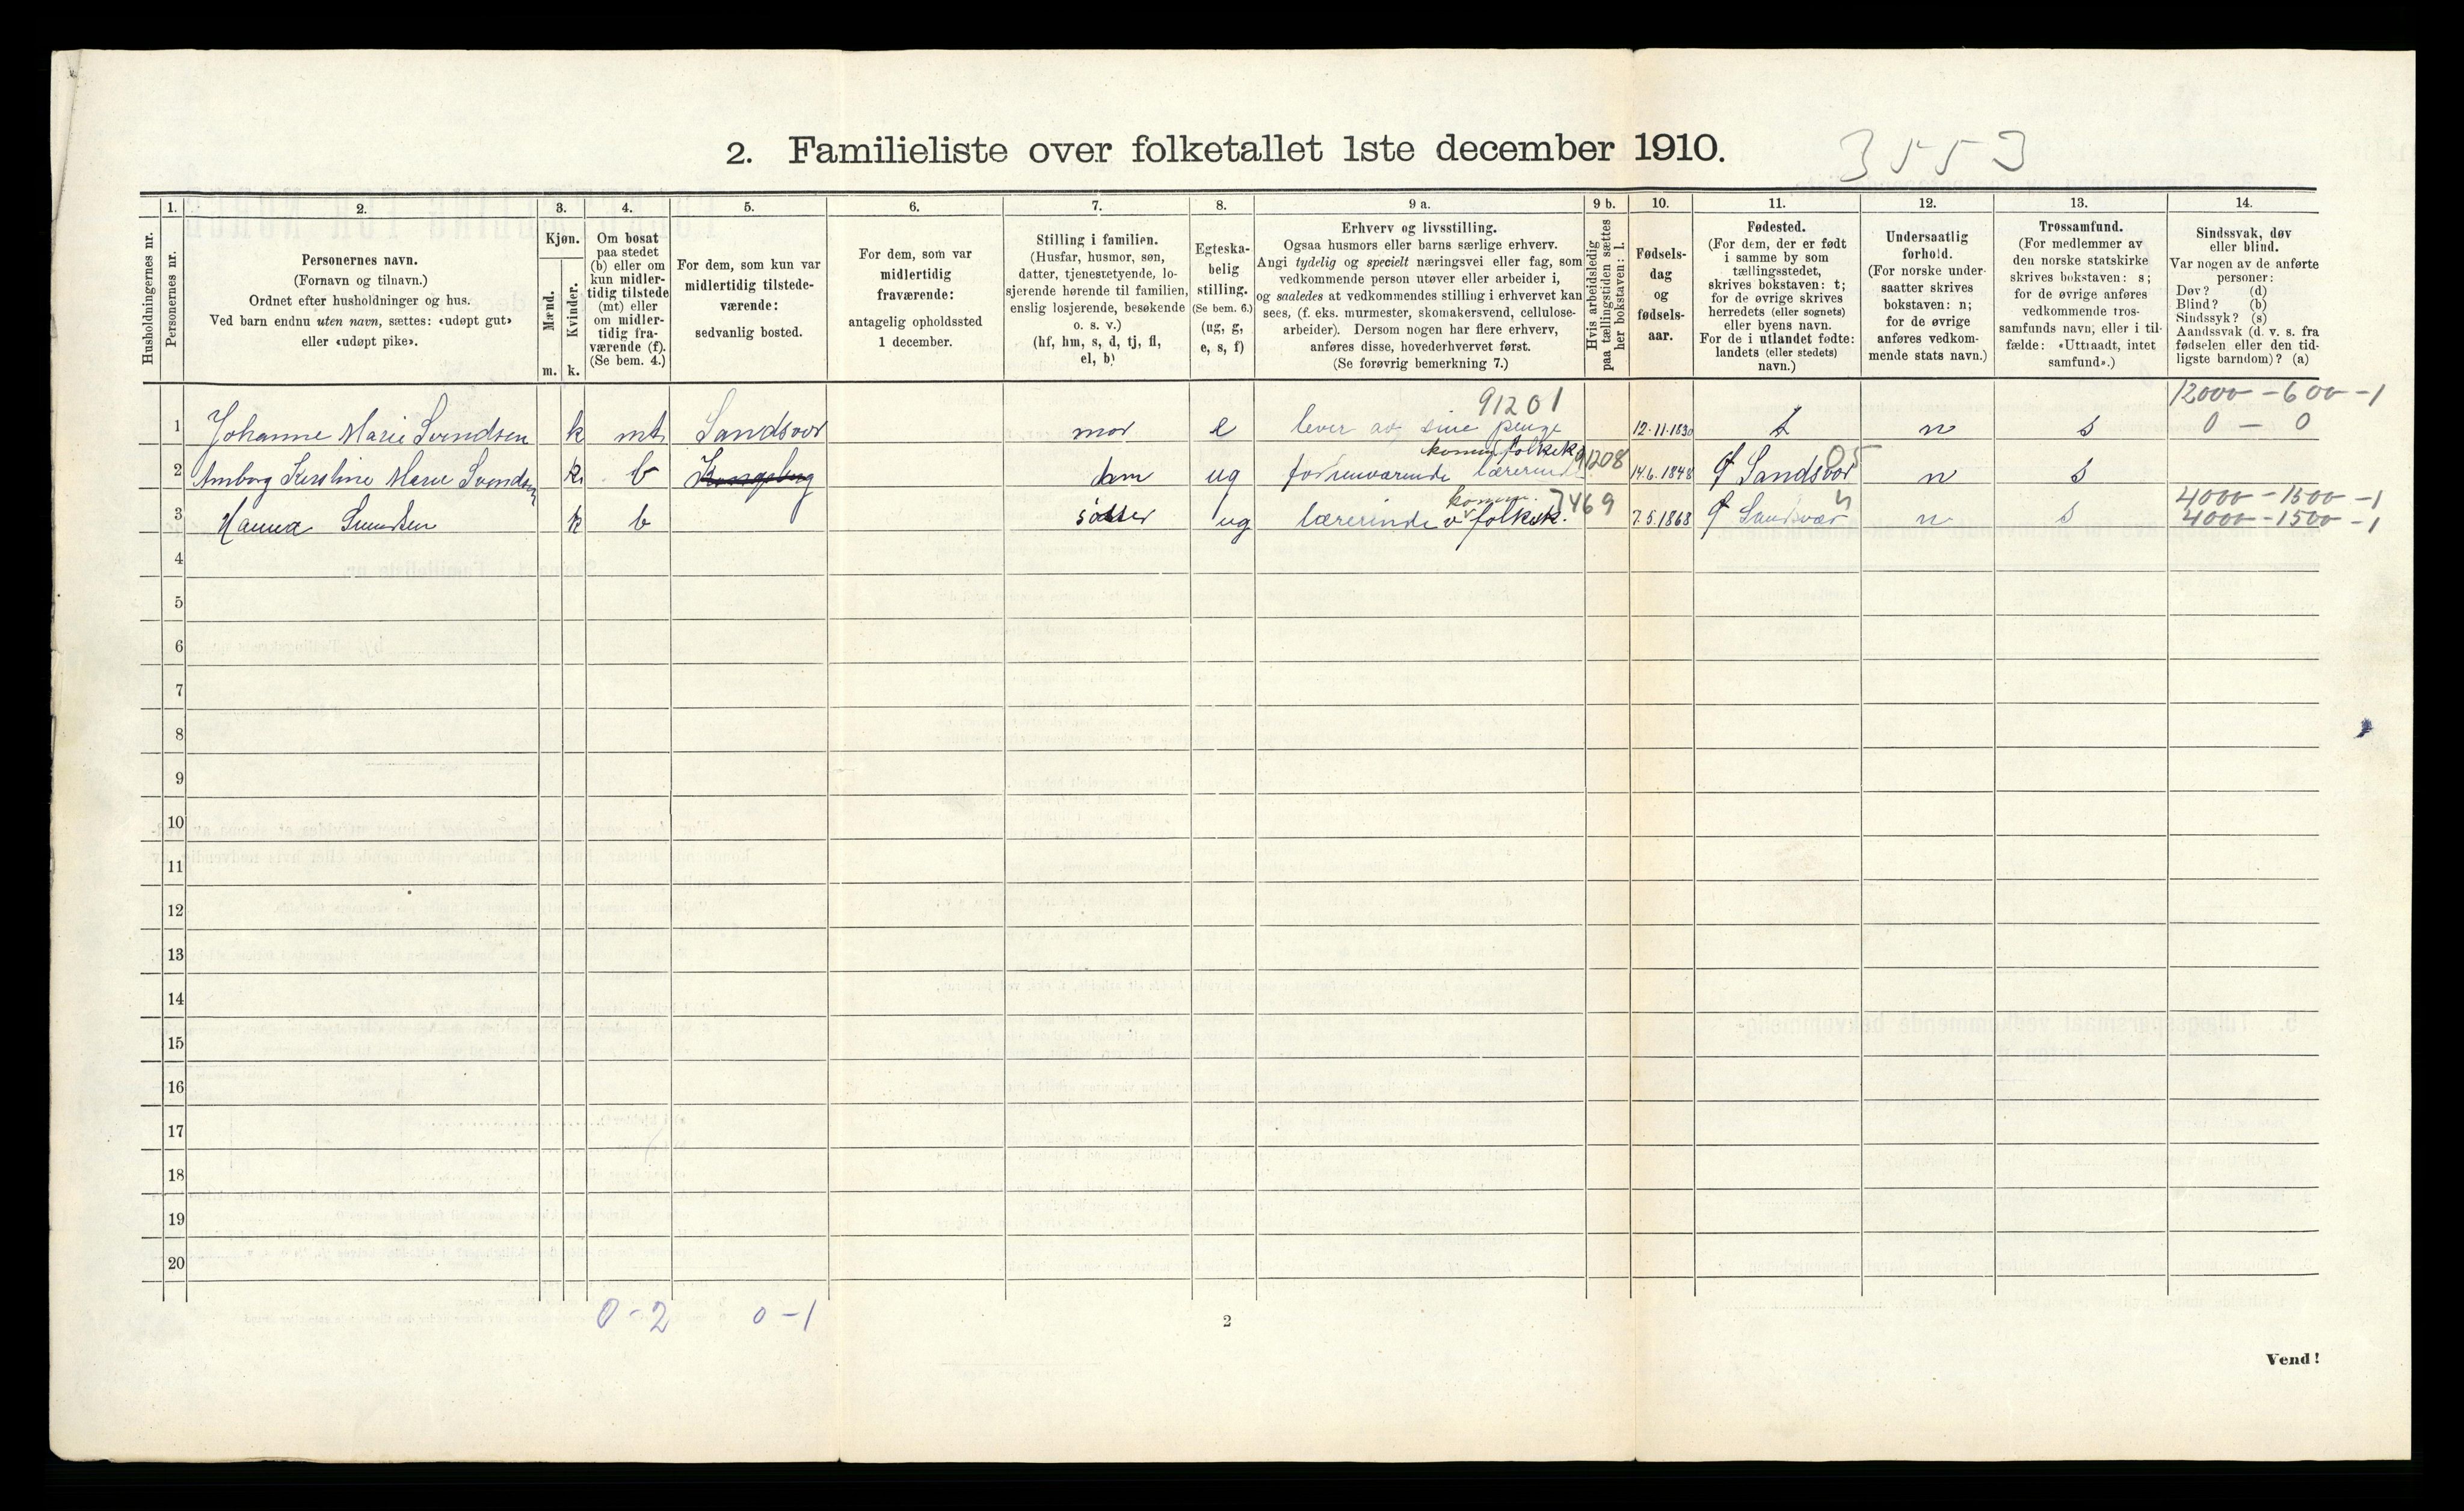 2. Familieliste over folketallet 1ste december 1910.
3553
Husholdningernes nr.
1.
Personernes nr.
2.
Personernes navn.
(Fornavn og tilnavn.)
Ordnet efter husholdninger og hus.
Ved barn endnu uten navn, sættes: «udøpt gut»
eller «udøpt pike».
3.
Kjøn.
Mænd.
Kvinder.
m.
k.
4.
Om bosat
paa stedet
(b) eller om
kun midler-
tidig tilstede
(mt) eller
om midler-
tidig fra-
værende (f).
(Se bem. 4.)
5.
For dem, som kun var
midlertidig tilstede-
værende:
sedvanlig bosted.
6.
For dem, som var
midlertidig
fraværende:
antagelig opholdssted
1 december.
7.
Stilling i familien.
(Husfar, husmor, søn,
datter, tjenestetyende, lo-
sjerende hørende til familien,
enslig losjerende, besøkende
o. s. v.)
(hf, hm, s, d, tj, fl,
el, b)
8.
Egteska-
belig
stilling.
(Se bem. 6.)
(ug, g,
e, s, f)
9 a.
Erhverv og livsstilling.
Ogsaa husmors eller barns særlige erhverv.
Angi tydelig og specielt næringsvei eller fag, som
vedkommende person utøver eller arbeider i,
og saaledes at vedkommendes stilling i erhvervet kan
sees, (f. eks. murmester, skomakersvend, cellulose-
arbeider). Dersom nogen har flere erhverv,
anføres disse, hovederhvervet først.
(Se forøvrig bemerkning 7.)
9 b.
Hvis arbeidsledig
paa tællingstiden sættes
her bokstaven: l.
10.
Fødsels-
dag
og
fødsels-
aar.
11.
Fødested.
(For dem, der er født
i samme by som
tællingsstedet,
skrives bokstaven: t;
for de øvrige skrives
herredets (eller sognets)
eller byens navn.
For de i utlandet fødte:
landets (eller stedets)
navn.)
12.
Undersaatlig
forhold.
(For norske under-
saatter skrives
bokstaven: n;
for de øvrige
anføres vedkom-
mende stats navn.)
13.
Trossamfund.
(For medlemmer av
den norske statskirke
skrives bokstaven: s;
for de øvrige anføres
vedkommende tros-
samfunds navn, eller i til-
fælde: «Uttraadt, intet
samfund».)
14.
Sindssvak, døv
eller blind.
Var nogen av de anførte
personer:
Døv? (d)
Blind? (b)
Sindssyk? (s)
Aandssvak (d. v. s. fra
fødselen eller den tid-
ligste barndom)? (a)
91201 12000 - 600 - 1
1 Johanne Marie Svendsen k mt Sandsvær mor e lever av sine penge 12.11.1830 t n s 0 - 0
komm folkek 91208 05
2 Kirstine Marie Svendsen k b Kongsberg hm ug forhenværende lærerind 14.6.1848 Sandsvær n s
komm. 7469 4000 - 1500 - 1
3 Hanna Svendsen k b søster ug lærerinde v folkesk. 7.5.1868 Sandsvær n s 4000 - 1500 - 1
4
5
6
7
8
9
10
11
12
13
14
15
16
17
18
19
20
0 - 2 0 - 1
2
Vend!